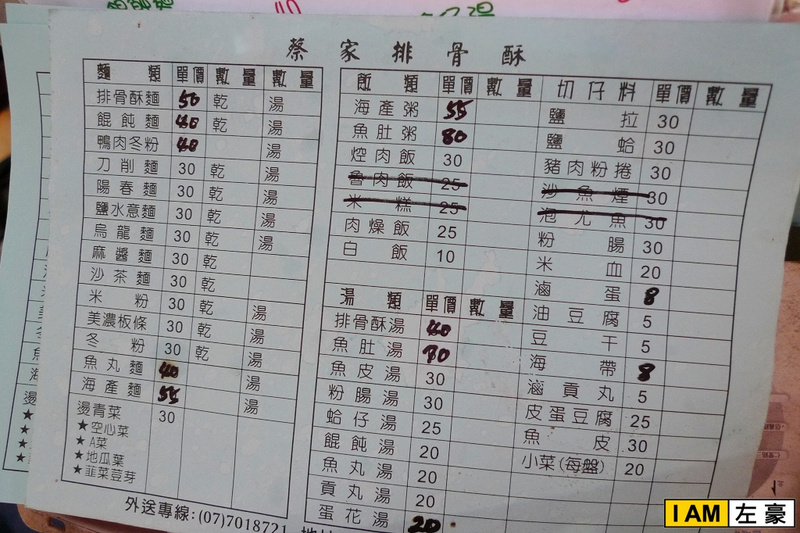 蔡家排骨酥
麵類 單價 數量 數量
排骨酥麵 50 乾 湯
餛飩麵 40 乾 湯
鴨肉冬粉 40 湯
刀削麵 30 乾 湯
陽春麵 30 乾 湯
鹽水意麵 30 乾 湯
烏龍麵 30 乾 湯
麻醬麵 30 乾
沙茶麵 30 乾
米粉 30 乾 湯
美濃板條 30 乾 湯
冬粉 30 乾 湯
魚丸麵 40 湯
海產麵 55 湯
燙青菜 30
★空心菜
★A菜
★地瓜葉
★韭菜荳芽
飯類 單價 數量
海產粥 55
魚肚粥 80
焢肉飯 30
魯肉飯 25
米糕 25
肉燥飯 25
白飯 10
湯類 單價 數量
排骨酥湯 40
魚肚湯 80
魚皮湯 30
粉腸湯 30
蛤仔湯 25
餛飩湯 20
魚丸湯 20
貢丸湯 20
蛋花湯 20
切仔料 單價 數量
鹽拉 30
鹽蛤 30
豬肉粉捲 30
沙魚煙 30
泡尤魚 30
粉腸 30
米血 20
滷蛋 8
油豆腐 5
豆干 5
海帶 8
滷貢丸 5
皮蛋豆腐 25
魚皮 30
小菜(每盤) 20
外送專線:(07)7018721
I AM 左豪